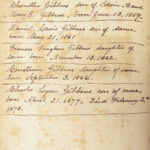 Chandler Gibbens son of Edwin, Hand
Mary E. Gibbens born June 13, 1859.
Daniel Lewis Gibbens son of same
born May 21, 1861
Frances Vaughan Gibbens daughter of
same born November 13, 1862.
Constance Gibbens daughter of same
born September 3, 1864.
Charles Lyon Gibbens son of same
born April 21, 1877. Died February
1878.